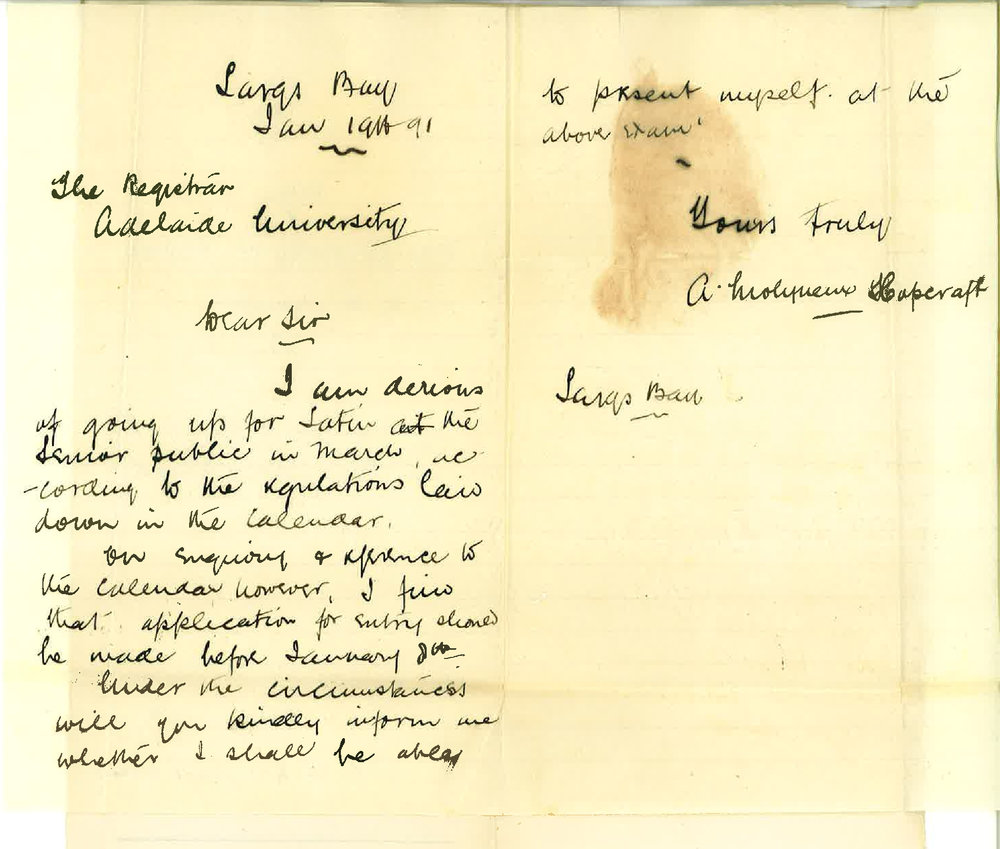 Largs Bay
Jan 19th 91
The Registrar
Adelaide University
Dear Sir
I am derious
of going up for Latin at the
Senior public in March, ac-
-cording to the regulations laid
down in the Calendar.
On enquiry & reference to
the Calendar however, I find
that application for entry should
be made before January 8th
Under the circumstances
will you kindly inform me
whether I shall be able
to present myself at the
above exam'
Yours truly
A. Molyneux Hopcraft
Largs Bay